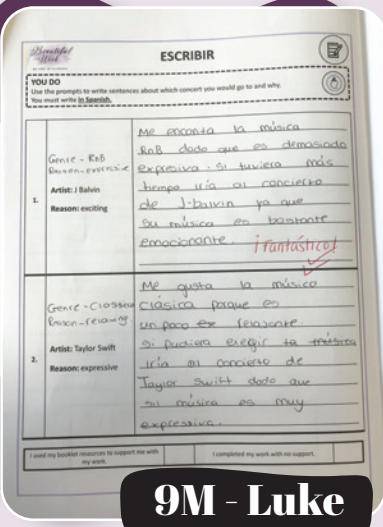 Beautiful
Work
ESCRIBIR
YOU DO
Use the prompts to write sentences about which concert you would go to and why.
You must write in Spanish.
1.
Genre - RnB
Reason - expressive
Artist: J Balvin
Reason: exciting
Me enconta la música
RnB dado que es demasiado
expresiva. Si tuviera más
tiempo iría al concierto
de J-balvin ya que
su música es bastante
emocionante. ¡fantástico!
2.
Genre - Classical
Reason - relaxing
Artist: Taylor Swift
Reason: expressive
Me gusta la músico
clásica porque es
un poco relajante.
Si pudiera elegir la música
iría al concierto de
Taylor Swift dado que
su música es muy
expressiva.
I used my booklet resources to support me with
my work.
I completed my work with no support.
9M - Luke